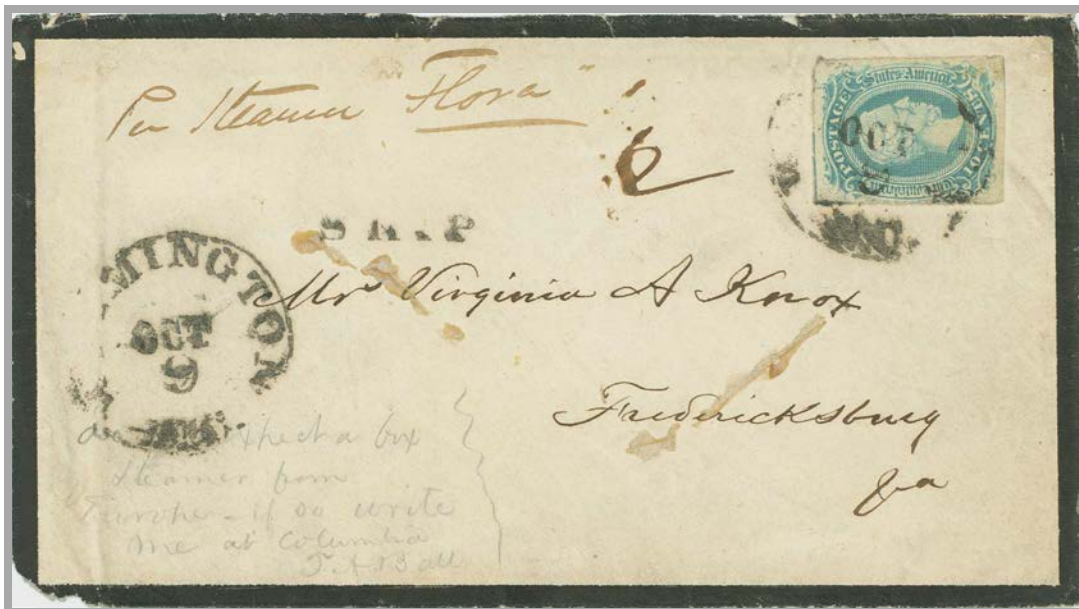 Per Steamer "Flora"
POSTAGE
States America
TEN CENTS
Confederate
OCT
2
SHIP
MINGTON
OCT
9
Mrs Virginia A Knox
Fredericksburg
Va
expect a box
steamer from
Europe - if so write
me at Columbia
Ball